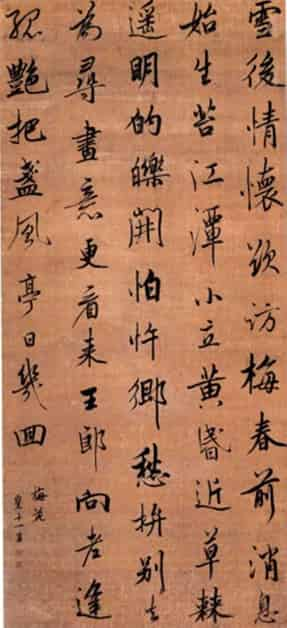 雪後情懷欲訪梅春前消息
始生苔江潭小立黄昏近草棘
遥明的皪開怕忤鄉愁拚别去
為尋畫意更看来王郎向老逢
孤艷把盞風亭日幾回
梅花
皇十一